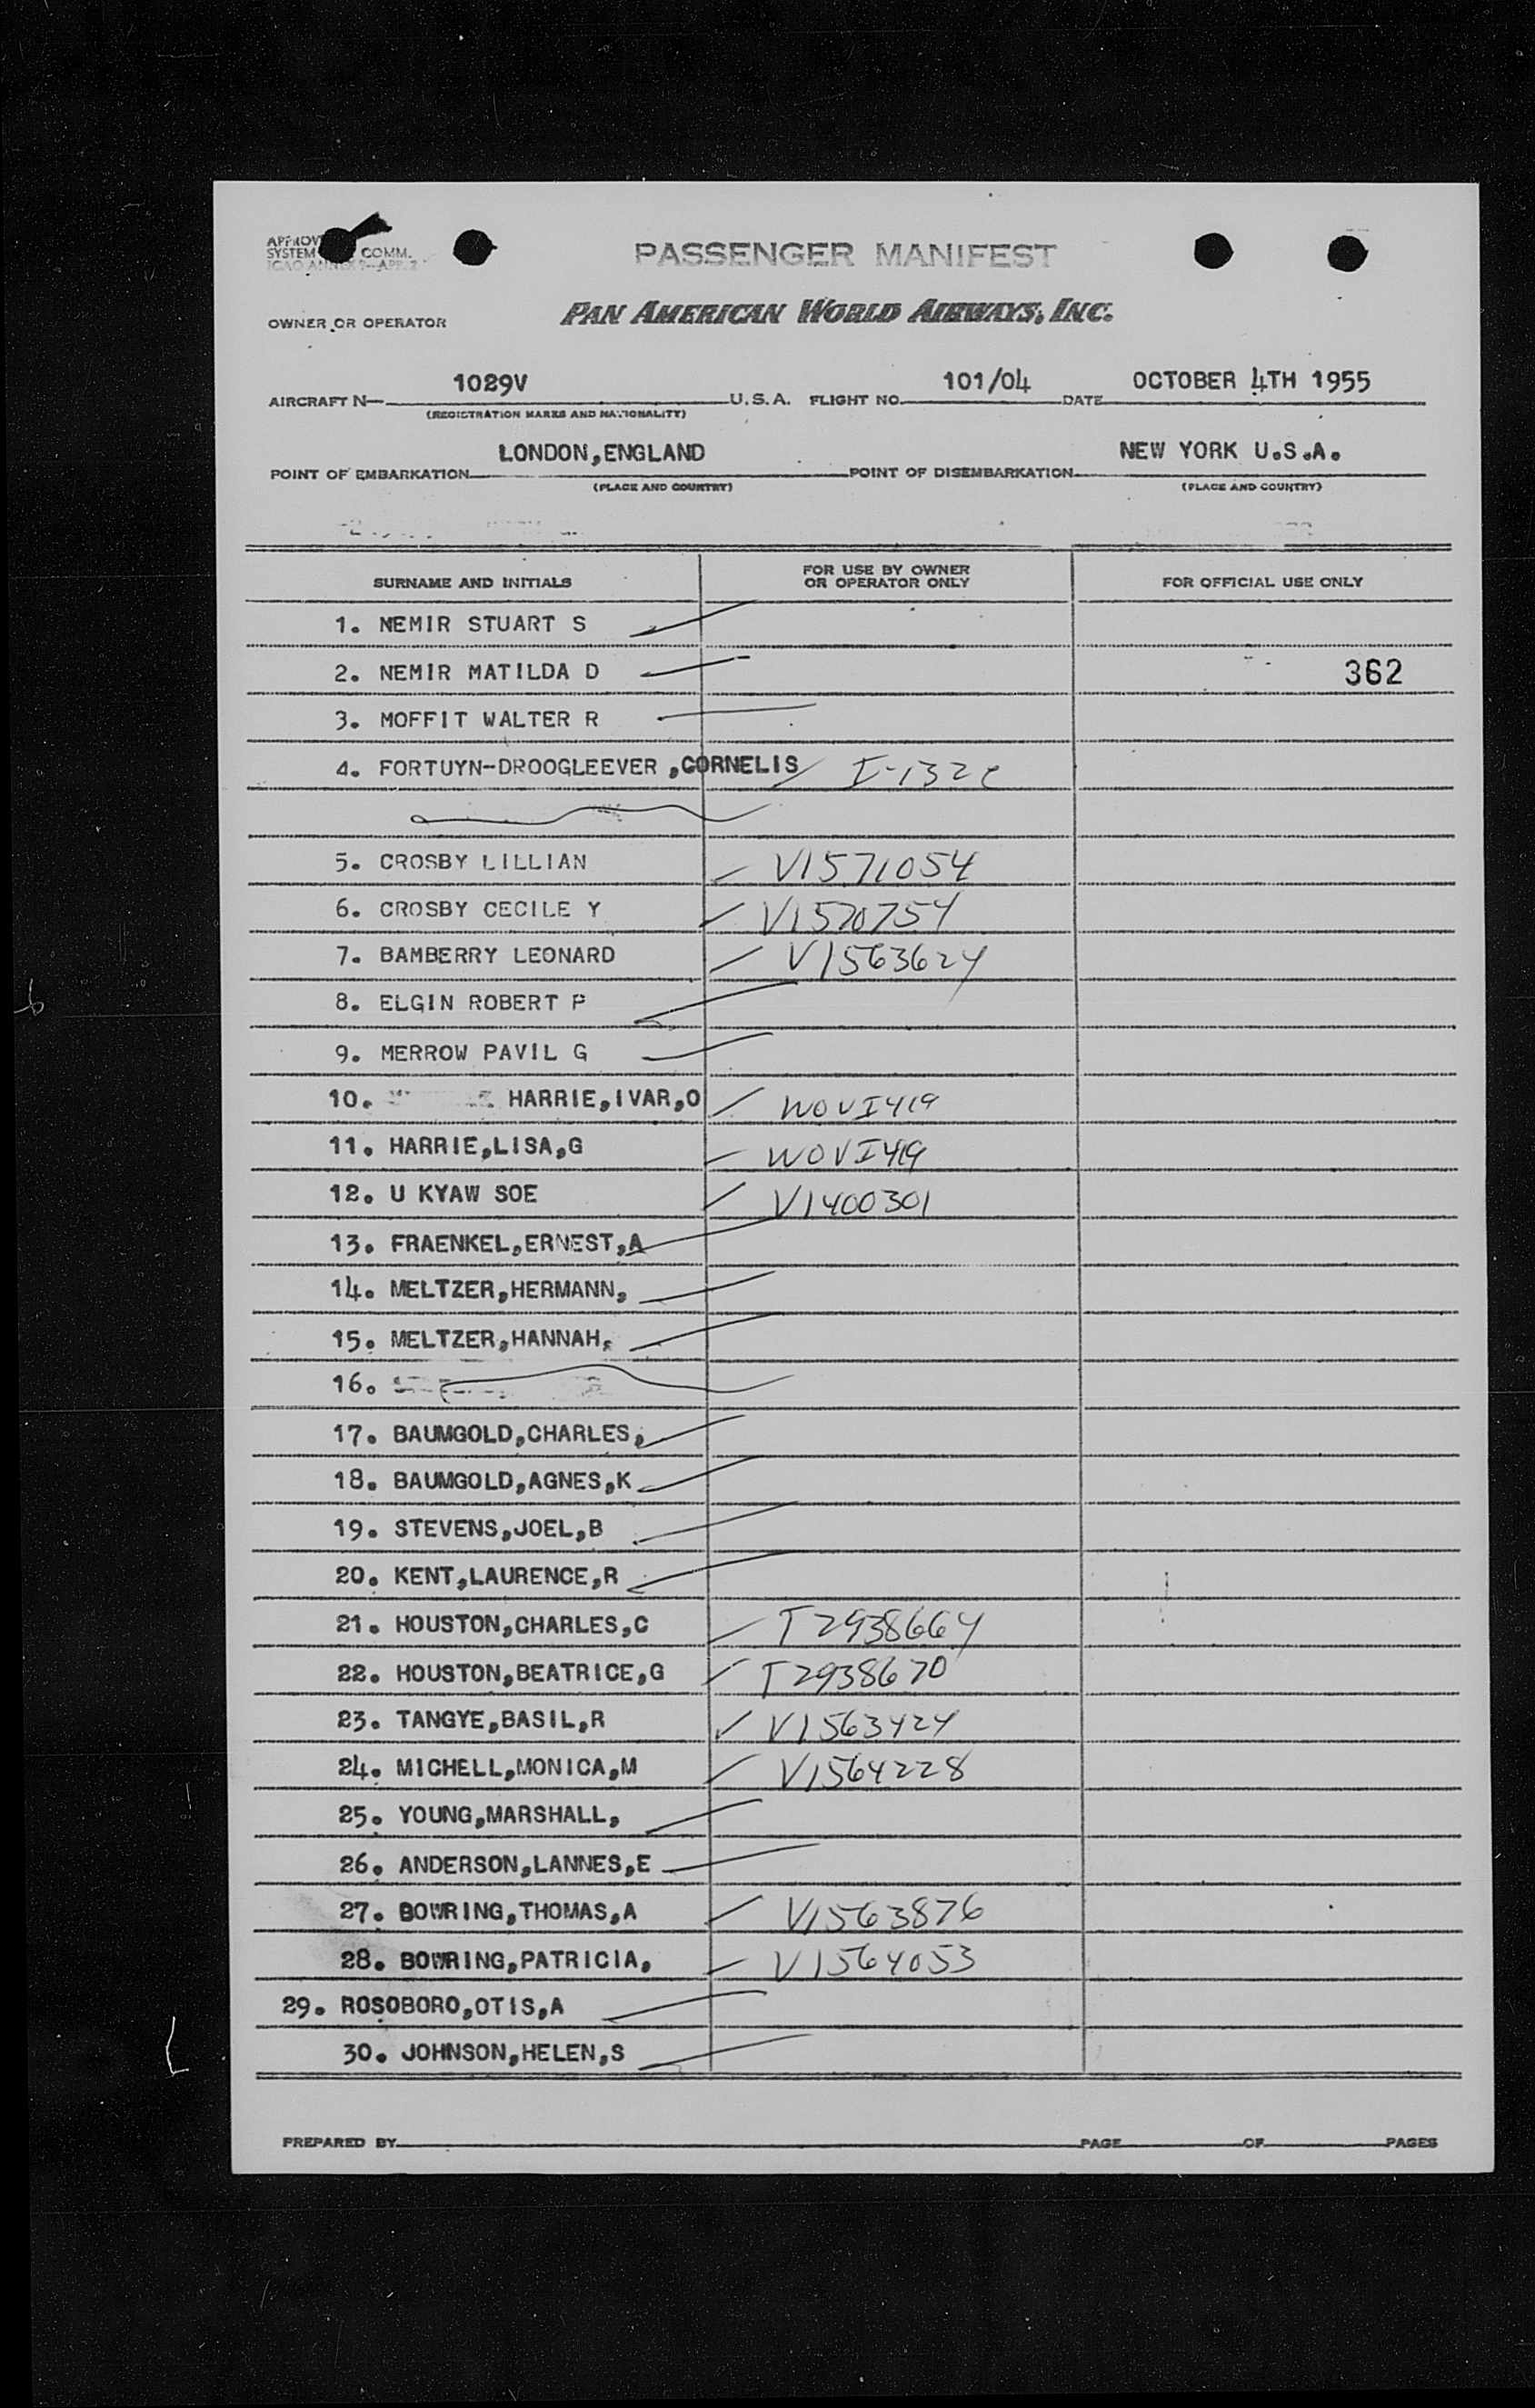 PASSENGER MANIFEST
SYSTEM COMM.
OWNER OR OPERATOR PAN AMERICAN WORLD AIRWAYS, INC.
AIRCRAFT N— 1029V U.S.A. FLIGHT NO. 101/04 DATE OCTOBER 4TH 1955
(REGISTRATION MARKS AND NATIONALITY)
POINT OF EMBARKATION LONDON,ENGLAND POINT OF DISEMBARKATION NEW YORK U.S.A.
(PLACE AND COUNTRY) (PLACE AND COUNTRY)
SURNAME AND INITIALS FOR USE BY OWNER OR OPERATOR ONLY FOR OFFICIAL USE ONLY
1. NEMIR STUART S
2. NEMIR MATILDA D 362
3. MOFFIT WALTER R
4. FORTUYN-DROOGLEEVER ,CORNELIS
5. CROSBY LILLIAN V1571054
6. CROSBY CECILE Y V1570754
7. BAMBERRY LEONARD V1563624
8. ELGIN ROBERT P
9. MERROW PAVIL G
10. HARRIE,IVAR,O WOVI419
11. HARRIE,LISA,G WOVI419
12. U KYAW SOE V1400301
13. FRAENKEL,ERNEST,A
14. MELTZER,HERMANN,
15. MELTZER,HANNAH,
16.
17. BAUMGOLD,CHARLES,
18. BAUMGOLD,AGNES,K
19. STEVENS,JOEL,B
20. KENT,LAURENCE,R
21. HOUSTON,CHARLES,C T2938664
22. HOUSTON,BEATRICE,G T2938670
23. TANGYE,BASIL,R V1563424
24. MICHELL,MONICA,M V1564228
25. YOUNG,MARSHALL,
26. ANDERSON,LANNES,E
27. BOWRING,THOMAS,A V1563876
28. BOWRING,PATRICIA, V1564053
29. ROSOBORO,OTIS,A
30. JOHNSON,HELEN,S
PREPARED BY PAGE OF PAGES